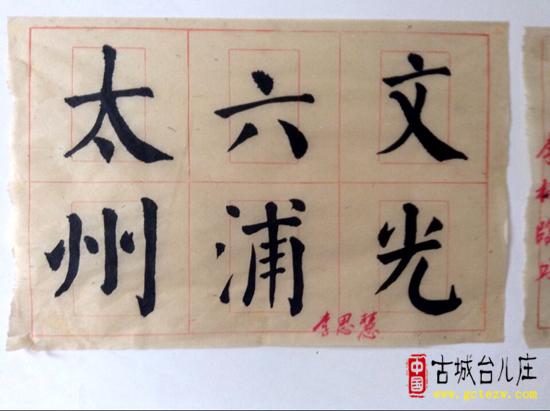 文光
六浦
太州
李思慧
中国
古城台儿庄
www.gctezw.com